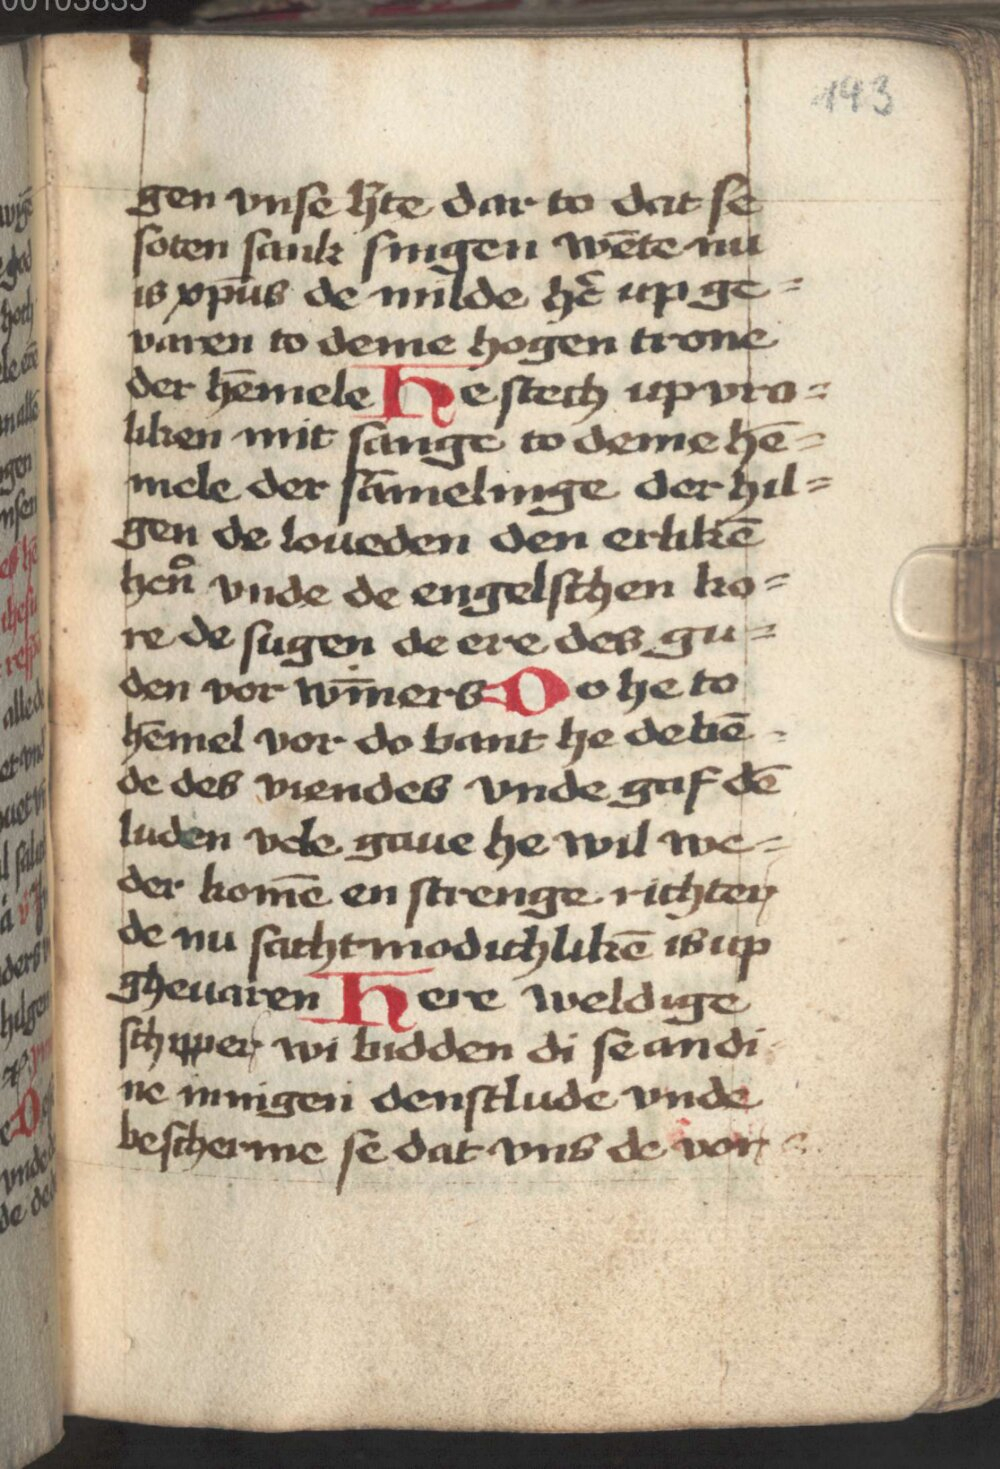 143
gen vnse h̄te dar to dat se
soten sank singen wēte nu
is xp̄us de milde hc̄ up ge=
varen to deme hogen trone
der hēmele He stech up vro=
liken mit sange to deme hē=
mele der sāmelinge der hil=
gen de loueden den erlikē
hen̊ vnde de engelschen ko=
re de sugen de ere des gu=
den vor win̄ers Do he to
hēmel vor do bant he de bē=
de des viendes vnde gaf dē
luden vele gaue he wil we=
der komē en strenge richter
de nu sachtmodichlikē is up
gheuaren Here weldige
schipper wi bidden di se an di
ne innigen denstlude vnde
bescherme se dat vns de vor